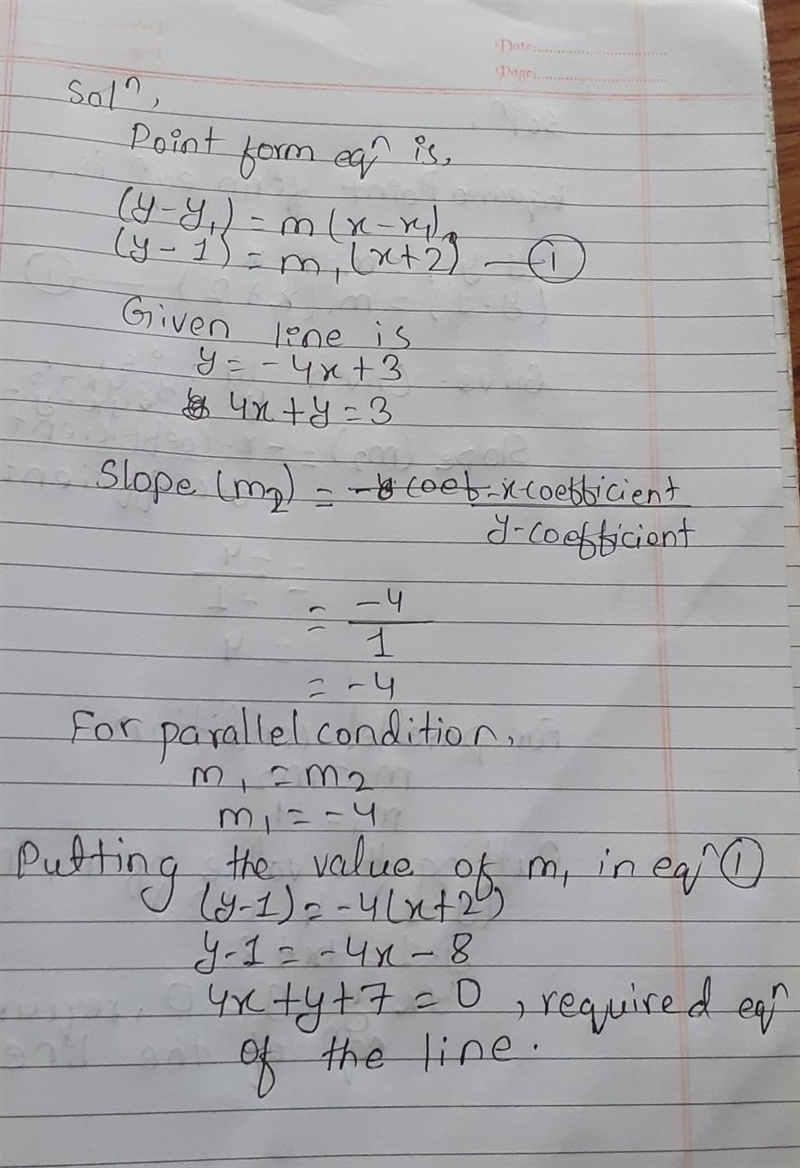 Date:
Page:
Solⁿ,
Point form eqⁿ is,
(y-y₁) = m(x-x₁)
(y-1) = m₁(x+2) — ①
Given line is
y = -4x+3
4x+y=3
Slope (m₂) = -x-coefficient
y-coefficient
= -4
1
= -4
For parallel condition,
m₁ = m₂
m₁ = -4
Putting the value of m₁ in eqⁿ ①
(y-1) = -4(x+2)
y-1 = -4x-8
4x+y+7=0, required eqⁿ
of the line.